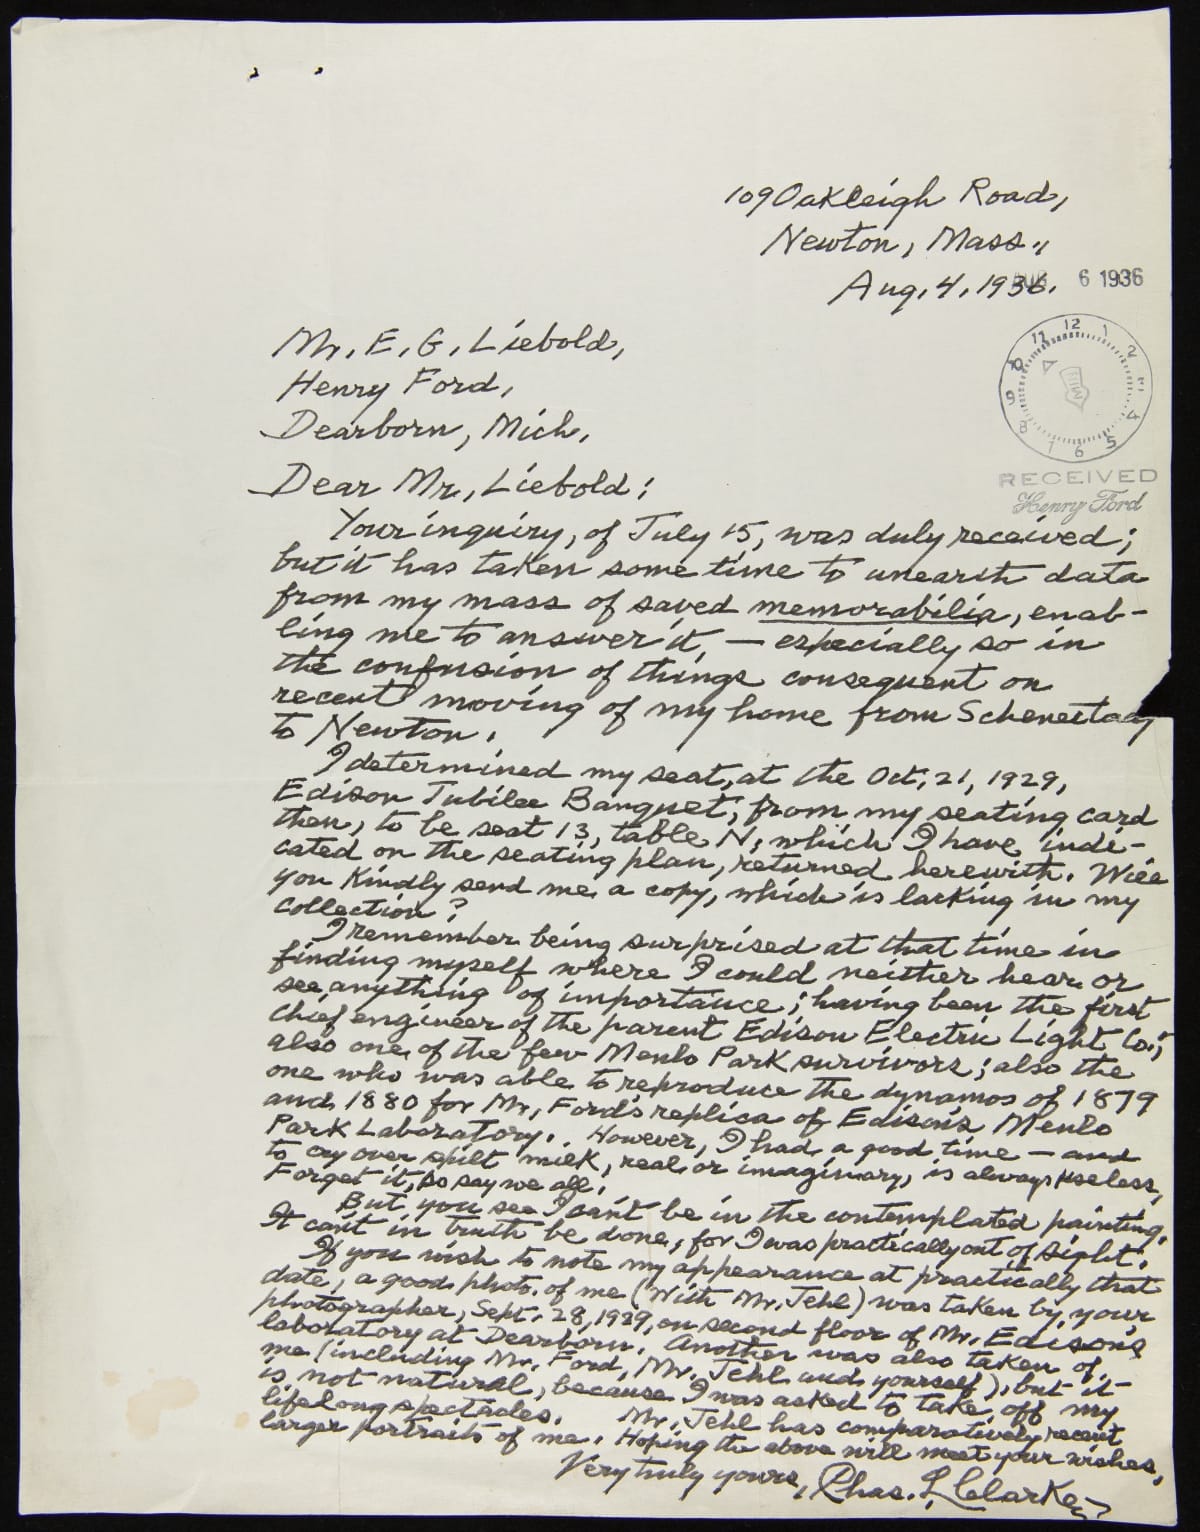 109 Oakleigh Road,
Newton, Mass.,
Aug. 4, 1936.
6 1936
Mr. E. G. Liebold,
Henry Ford,
Dearborn, Mich.
12 1 2 3 4 5 6 7 8 9 10 11
RECEIVED
Henry Ford
Dear Mr. Liebold:
Your inquiry, of July 15, was duly received;
but it has taken some time to unearth data
from my mass of saved memorabilia, enab-
ling me to answer it, — especially so in
the confusion of things consequent on
recent moving of my home from Schenectady
to Newton.
I determined my seat, at the Oct. 21, 1929,
Edison Jubilee Banquet, from my seating card
then, to be seat 13, table N, which I have indi-
cated on the seating plan, returned herewith. Will
you kindly send me a copy, which is lacking in my
collection?
I remember being surprised at that time in
finding myself where I could neither hear or
see anything of importance; having been the first
chief engineer of the parent Edison Electric Light Co.;
also one of the few Menlo Park survivors; also the
one who was able to reproduce the dynamos of 1879
and 1880 for Mr. Ford's replica of Edison's Menlo
Park Laboratory. However, I had a good time — and
to cry over spilt milk, real or imaginary, is always useless,
Forget it, so say we all.
But, you see I can't be in the contemplated painting.
It can't in truth be done, for I was practically out of sight.
If you wish to note my appearance at practically that
date, a good photo. of me (with Mr. Jehl) was taken by your
photographer, Sept. 28, 1929, on second floor of Mr. Edison's
laboratory at Dearborn. Another was also taken of
me (including Mr. Ford, Mr. Jehl and yourself), but it
is not natural, because I was asked to take off my
lifelong spectacles. Mr. Jehl has comparatively recent
larger portraits of me. Hoping the above will meet your wishes,
Very truly yours, Chas. L. Clarke